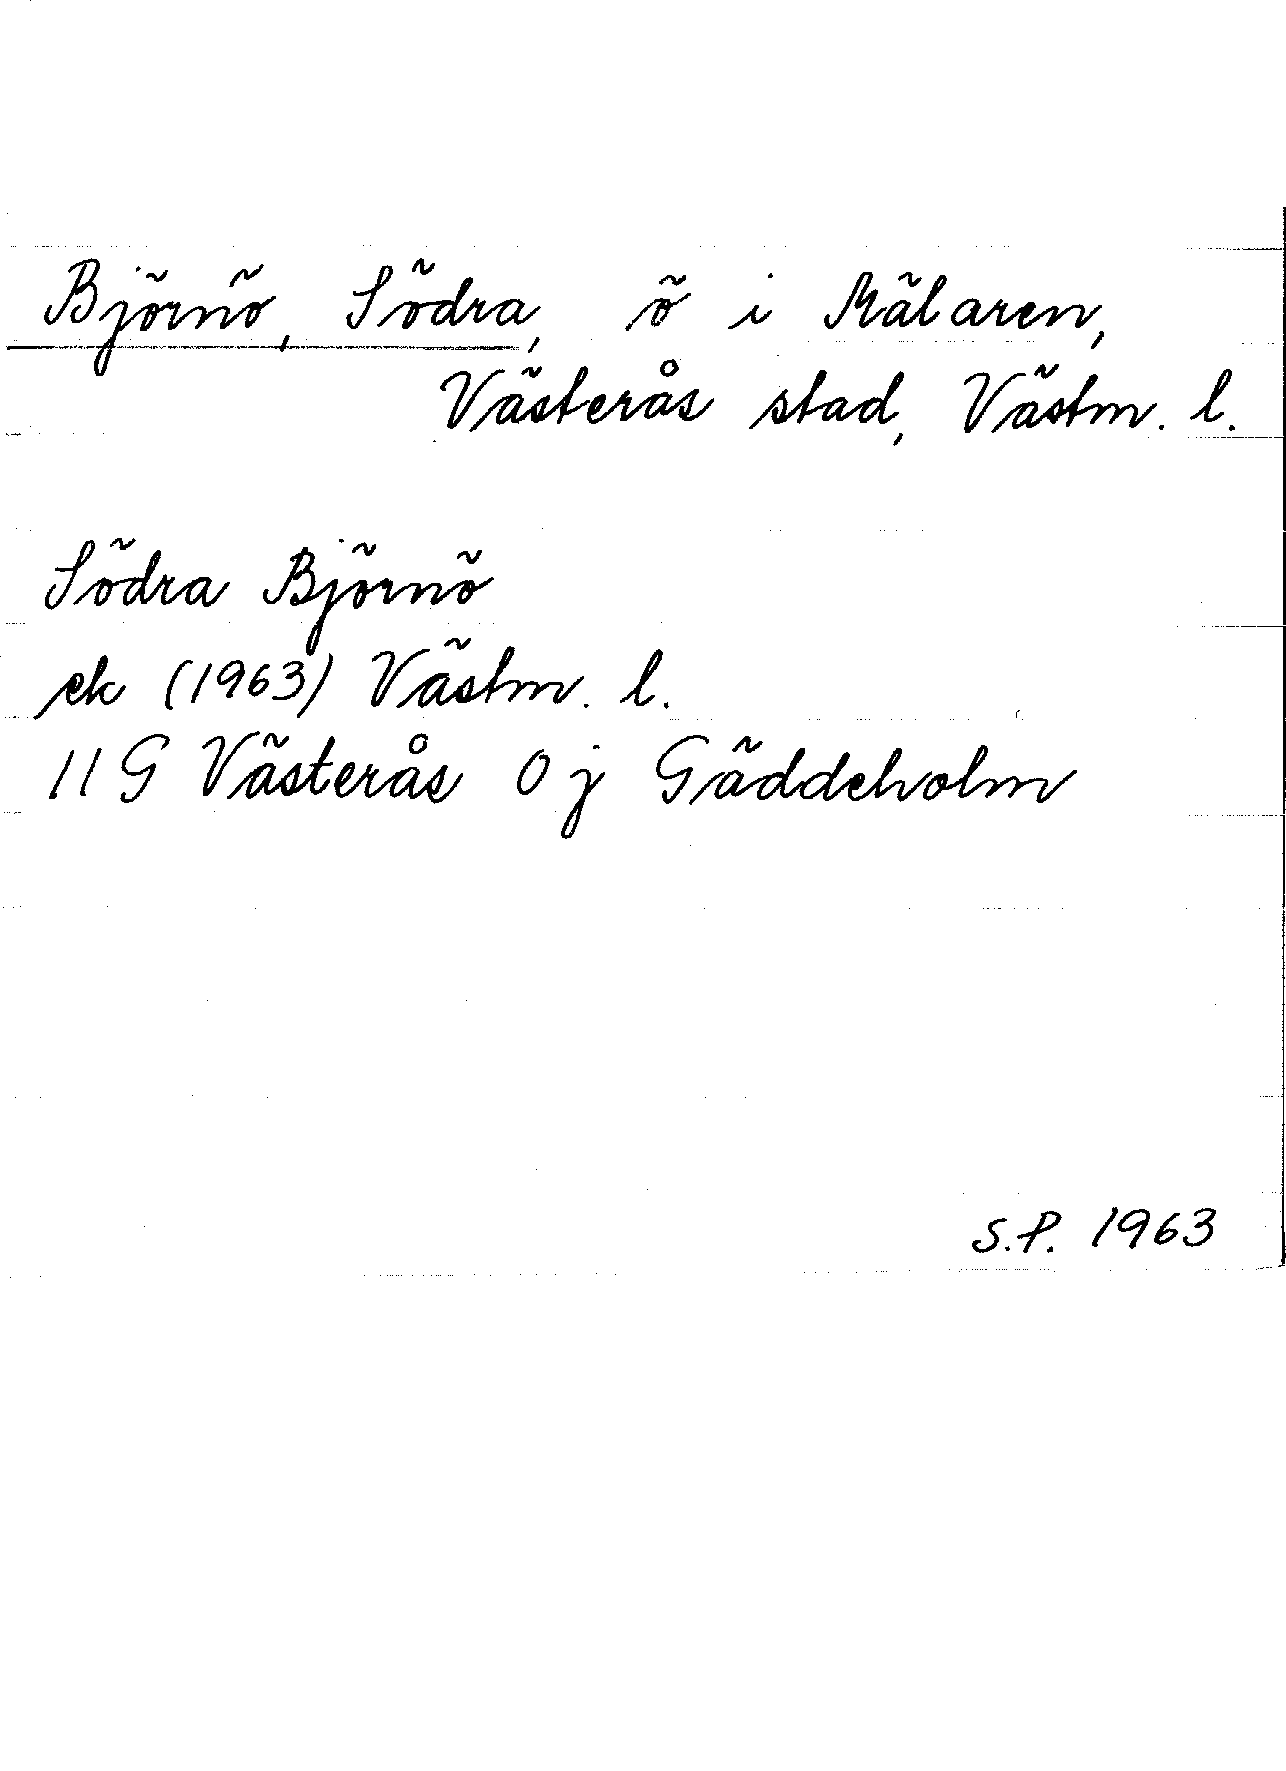 Björnö, Södra, ö i Mälaren,
Västerås stad, Västm. l.
Södra Björnö
ek (1963) Västm. l.
11G Västerås 0j Gäddeholm
S.P. 1963